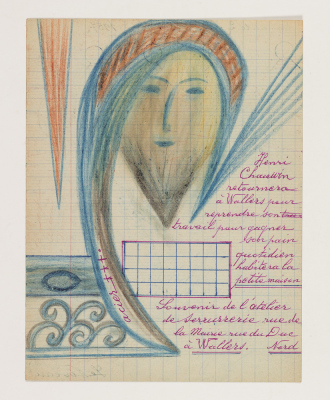 Henri
Chauvin
retournera
à Wallers pour
reprendre son
travail pour gagner
son pain
quotidien
habitera la
petite maison
acier +++.
Souvenir de l'atelier
de serrurerie rue de
la Mairie rue du Duc
à Wallers. Nord